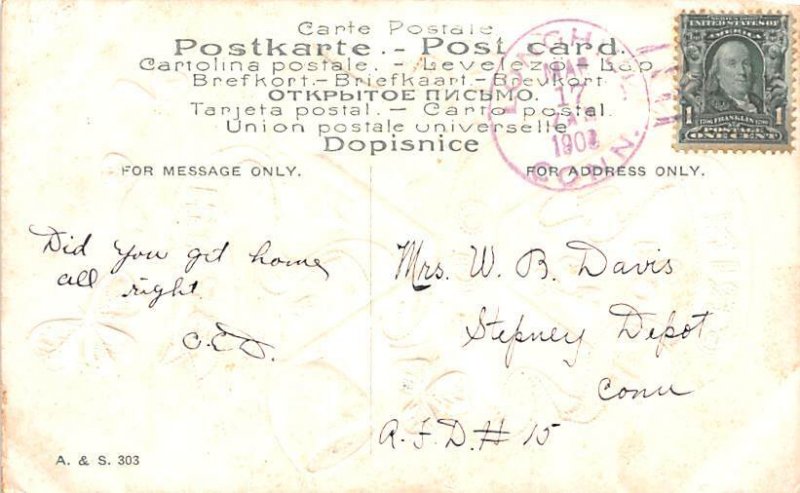 Carte Postale
Postkarte. - Post card.
Cartolina postale. - Levelező-Lap
Brefkort. - Briefkaart. - Brevkort
ОТКРЫТОЕ ПИСЬМО.
Tarjeta postal. - Carto postal.
Union postale universelle
Dopisnice
CONN.
UNITED STATES OF
AMERICA
1 1
FRANKLIN
POSTAGE
ONE CENT
FOR MESSAGE ONLY.
FOR ADDRESS ONLY.
Did you get home
all right.
C.E.D.
Mrs. W. B. Davis
Stepney Depot
Conn
R.F.D. # 15
A. & S. 303